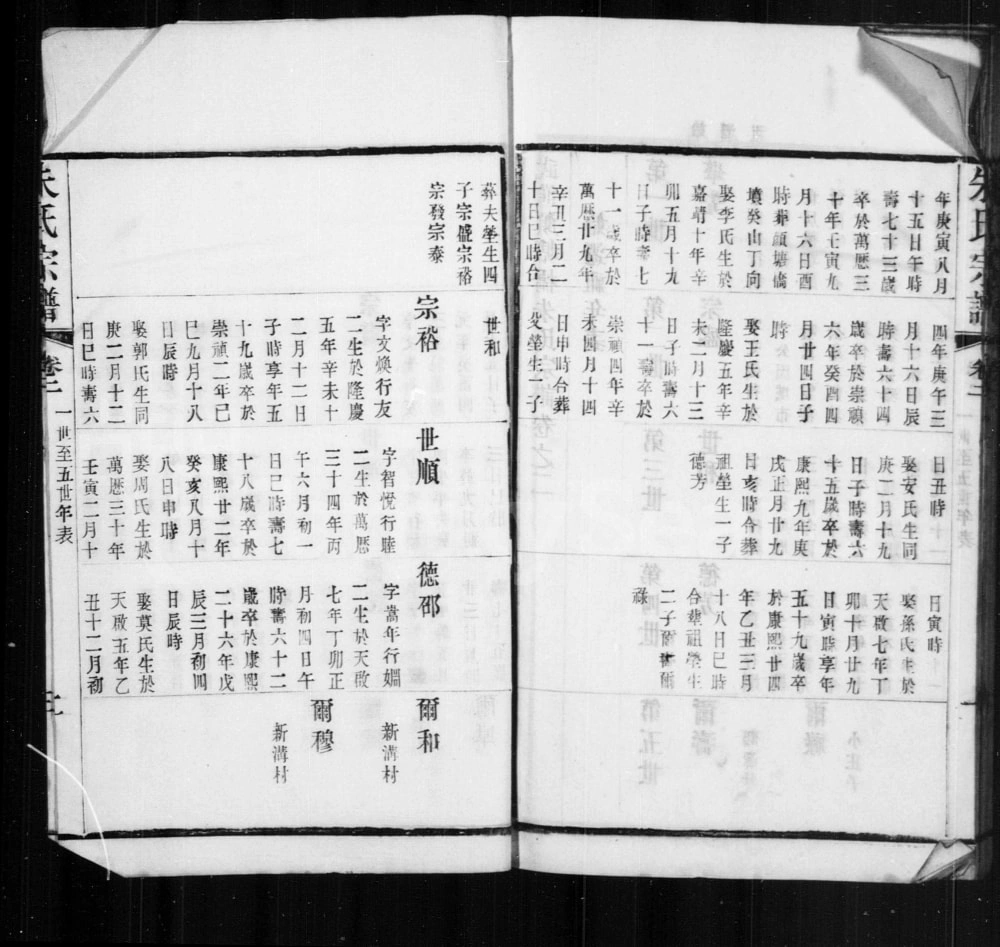 朱氏宗譜
卷二
年庚寅八月
十五日午時
壽七十三歲
卒於萬歷三
十年壬寅九
月十六日酉
時葬顧塘橋
墳癸山丁向
娶李氏生於
嘉靖十年辛
卯五月十九
日子時壽七
十一歲卒於
萬歷廿九年
辛丑三月二
十日巳時合
四年庚午三
月十六日辰
時壽六十四
歲卒於崇禎
六年癸酉四
月廿四日子
時
娶王氏生於
隆慶五年辛
未二月十三
日子時壽六
十一壽卒於
崇禎四年辛
未四月十四
日申時合葬
父塋生二子
日丑時
娶安氏生同
庚二月十九
日子時壽六
十五歲卒於
康熙九年庚
戌正月廿九
日亥時合葬
祖塋生一子
德芳
日寅時
娶孫氏生於
天啟七年丁
卯十月廿九
日寅時享年
五十九歲卒
於康熙廿四
年乙丑三月
十八日巳時
合葬祖塋生
二子爾壽爾
祿
葬夫塋生四
子宗盛宗裕
宗發宗泰
世和
宗裕
字文煥行友
二生於隆慶
五年辛未十
二月十二日
子時享年五
十九歲卒於
崇禎二年己
巳九月十八
日辰時
娶郭氏生同
庚二月十二
日巳時壽六
世順
字智悅行睦
二生於萬歷
三十四年丙
午六月初一
日巳時壽七
十八歲卒於
康熙廿二年
癸亥八月十
八日申時
娶周氏生於
萬歷三十年
壬寅二月十
德邵
字嵩年行婣
二生於天啟
七年丁卯正
月初四日午
時壽六十二
歲卒於康熙
二十六年戊
辰三月初四
日辰時
娶莫氏生於
天啟五年乙
丑十二月初
爾和
新溝村
爾穆
新溝村
朱氏宗譜
卷二
一世至五世年表